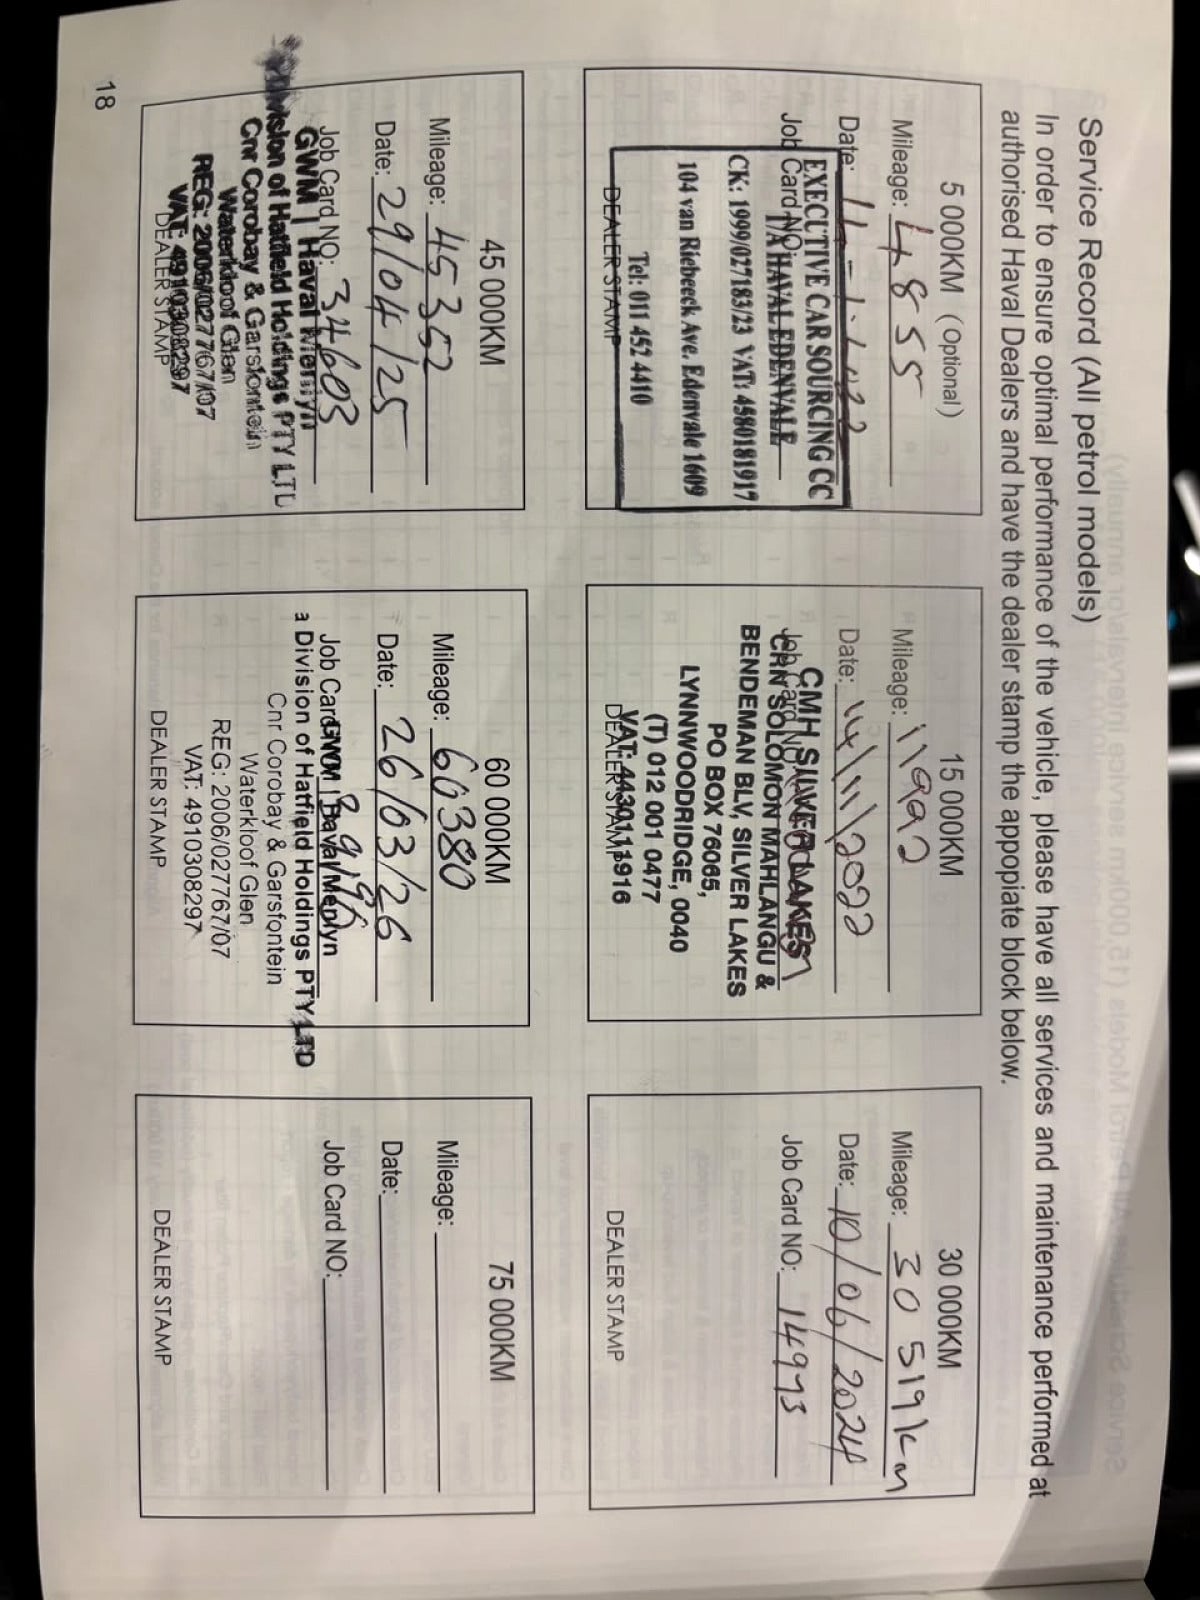 Service Record (All petrol models)
In order to ensure optimal performance of the vehicle, please have all services and maintenance performed at
authorised Haval Dealers and have the dealer stamp the appopiate block below.
5 000KM (Optional)
Mileage: 4855
Date:
Job Card NO:
EXECUTIVE CAR SOURCING CC
T/A HAVAL EDENVALE
CK: 1999/027183/23 VAT: 4580181917
104 van Riebeeck Ave. Edenvale 1609
Tel: 011 452 4410
DEALER STAMP
15 000KM
Mileage: 11992
Date: 14/11/2022
Job Card NO:
CMH SILVER LAKES
CRN SOLOMON MAHLANGU &
BENDEMAN BLV, SILVER LAKES
PO BOX 76065,
LYNNWOODRIDGE, 0040
(T) 012 001 0477
VAT: 4430111916
DEALER STAMP
30 000KM
Mileage: 30 519km
Date: 10/06/2024
Job Card NO: 14993
DEALER STAMP
45 000KM
Mileage: 45352
Date: 29/04/25
Job Card NO: 34603
GWM | Haval Menlyn
a Division of Hatfield Holdings PTY LTD
Cnr Corobay & Garsfontein
Waterkloof Glen
REG: 2006/027767/07
VAT: 4910308297
DEALER STAMP
60 000KM
Mileage: 60380
Date: 26/03/26
Job Card
GWM | Haval Menlyn
a Division of Hatfield Holdings PTY LTD
Cnr Corobay & Garsfontein
Waterkloof Glen
REG: 2006/027767/07
VAT: 4910308297
DEALER STAMP
75 000KM
Mileage:
Date:
Job Card NO:
DEALER STAMP
18